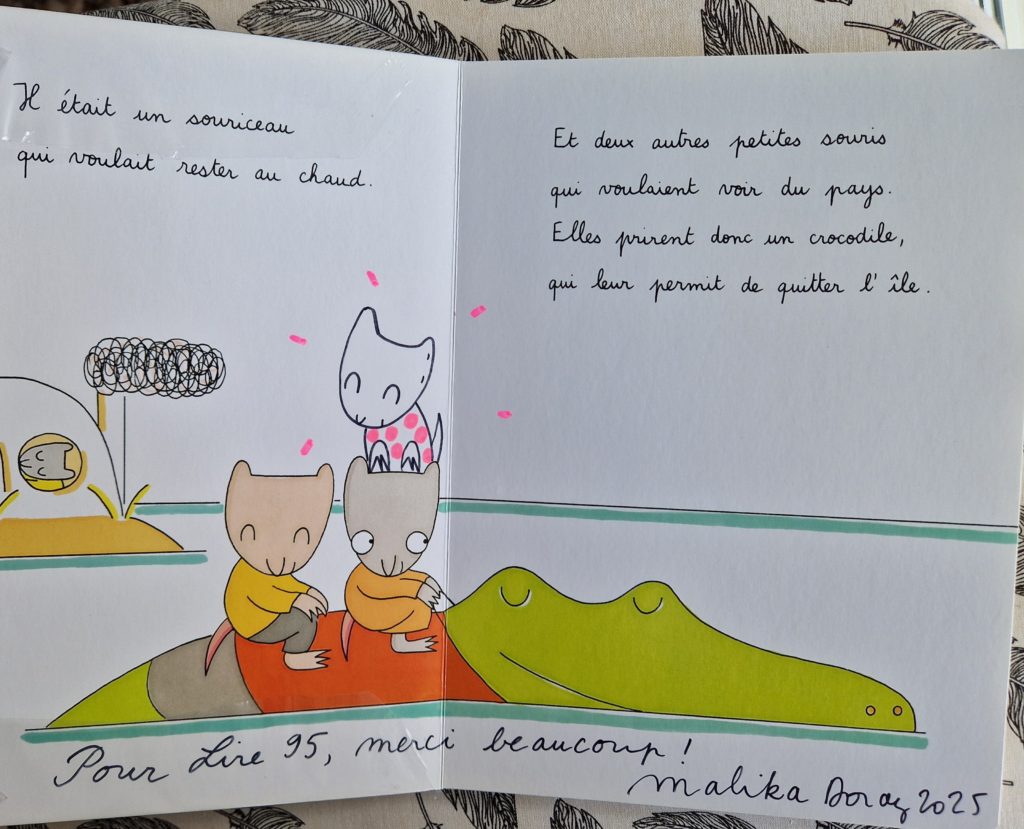 Il était un souriceau
qui voulait rester au chaud.
Et deux autres petites souris
qui voulaient voir du pays.
Elles prirent donc un crocodile,
qui leur permit de quitter l'île.
Pour Lire 95, merci beaucoup !
Malika Doray 2025